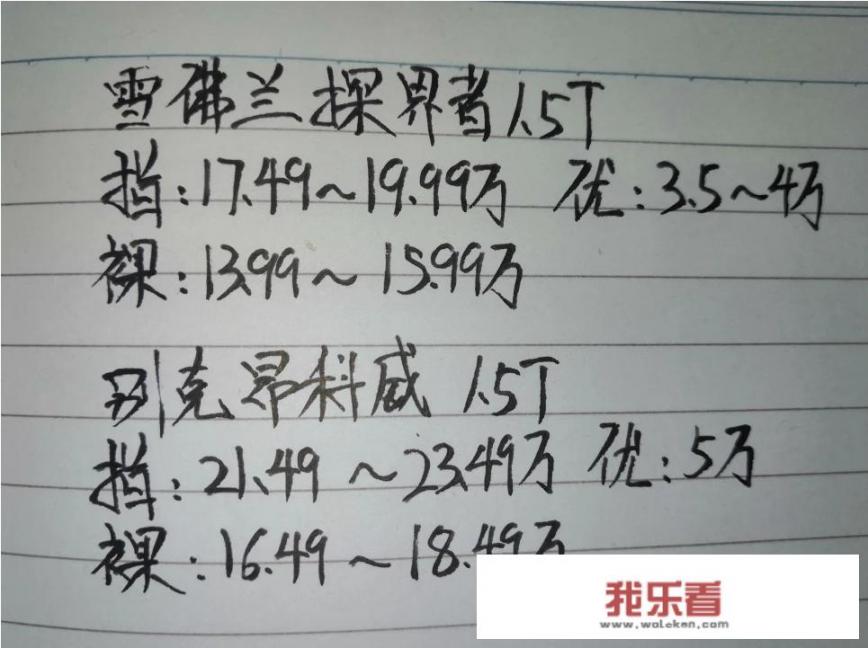 雪佛兰探界者1.5T
指:17.49~19.99万 优:3.5~4万
裸:13.99~15.99万
别克昂科威 1.5T
指:21.49~23.49万 优:5万
裸:16.49~18.49万
我乐看
www.woleken.com